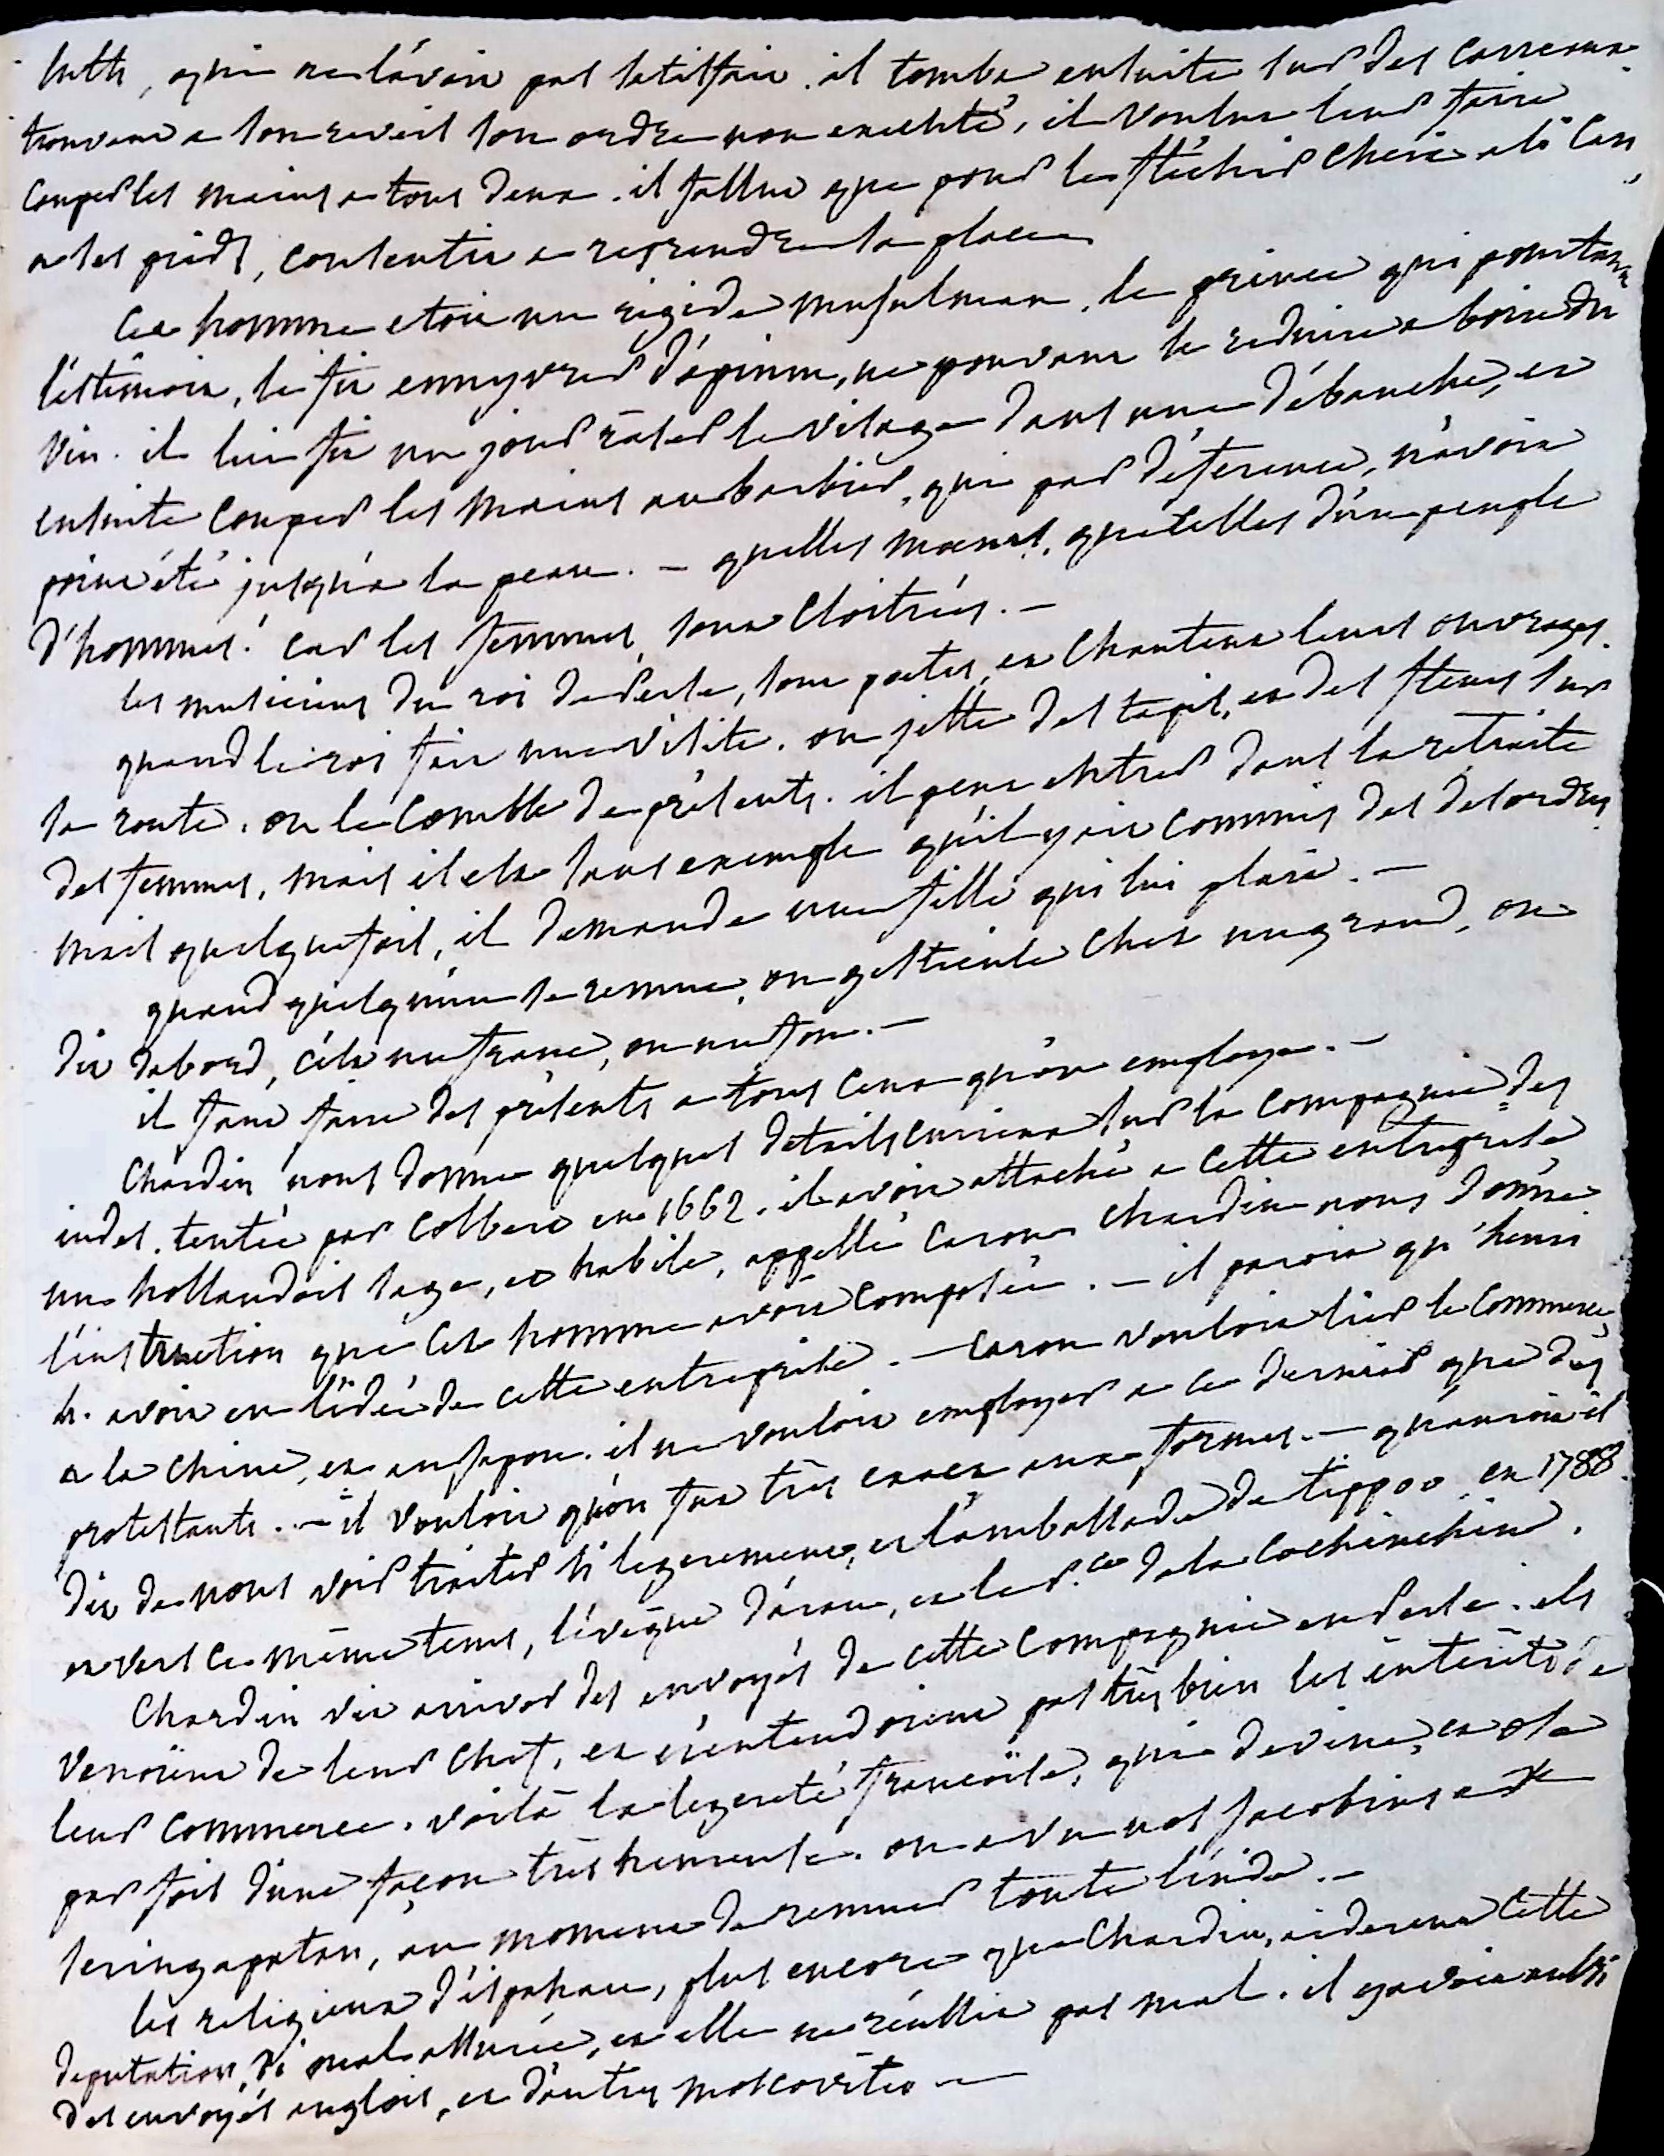 luth, qui ne l'avoit pas satisfait. il tomba ensuite sur des carreaux
trouvant a son reveil son ordre non executé, il voulut leur faire
couper les mains a tous deux. il fallut que pour le fléchir Cheic ali Can,
a ses pieds, consentit a reprendre sa place.
Cet homme etoit un rigide musulman, le prince qui pourtant
l'estimoit, le fit ennyvrer d'opium, ne pouvant le reduire a boire du
vin. il lui fit un jour raser le visage dans une débauche, et
ensuite couper les mains au barbier, qui par déference, n'avoit
point été jusqu'a la peau. – quelles moeurs, que celles d'un peuple
d'hommes! car les femmes sont cloitrées. –
les musiciens du roi de Perse, sont poetes, et chantent leurs ouvrages.
quand le roi fait une visite. on jette des tapis, et des fleurs sur
sa route. on le comble de présents. il peut entrer dans la retraite
des femmes, mais il est sans exemple qu'il y ait commis des desordres,
mais quelquefois, il demande une fille qui lui plait. –
quand quelqu'un se remue, ou gesticule chez un grand, on
dit dabord, c'est un franc, ou un fou. –
il faut faire des présents a tous ceux qu'on employe. –
Chardin nous donne quelques details curieux sur la compagnie des
indes. tentée par Colbert en 1662. il avoit attaché a cette entreprise
un hollandois sage, et habile, appellé Caron Chardin nous donne
l'instruction que cet homme avoit composée. – il paroit qu'henri
4. avoit eu l'idée de cette entreprise. – Caron vouloit lier le commerce
a la chine, et au Japon. il ne vouloit employer a ce dernier que des
protestants. – il vouloit qu'on fut très exact aux formes. – qu'auroit il
dit de nous voir traiter si legerement, et l'ambassade de tippoo en 1788.
et vers ce même tems, l'évêque d'adran, et le P.ce de la cochinchine.
Chardin vit arriver des envoyés de cette compagnie en Perse. ils
venoient de leur chef, et n'entendoient pas très bien les intérêts de
leur commerce. voilà la legereté françoise, qui devine, et ose
par fois d'une façon très heureuse. on a vu nos jacobins a
seringapatan, au moment de remuer toute l'inde. –
les religieux d'ispahan, plus encore que Chardin, aiderent cette
deputation si mal assurée, et elle ne réussit pas mal. il y avoit aussi
des envoyés anglois, et d'autres moscovites –